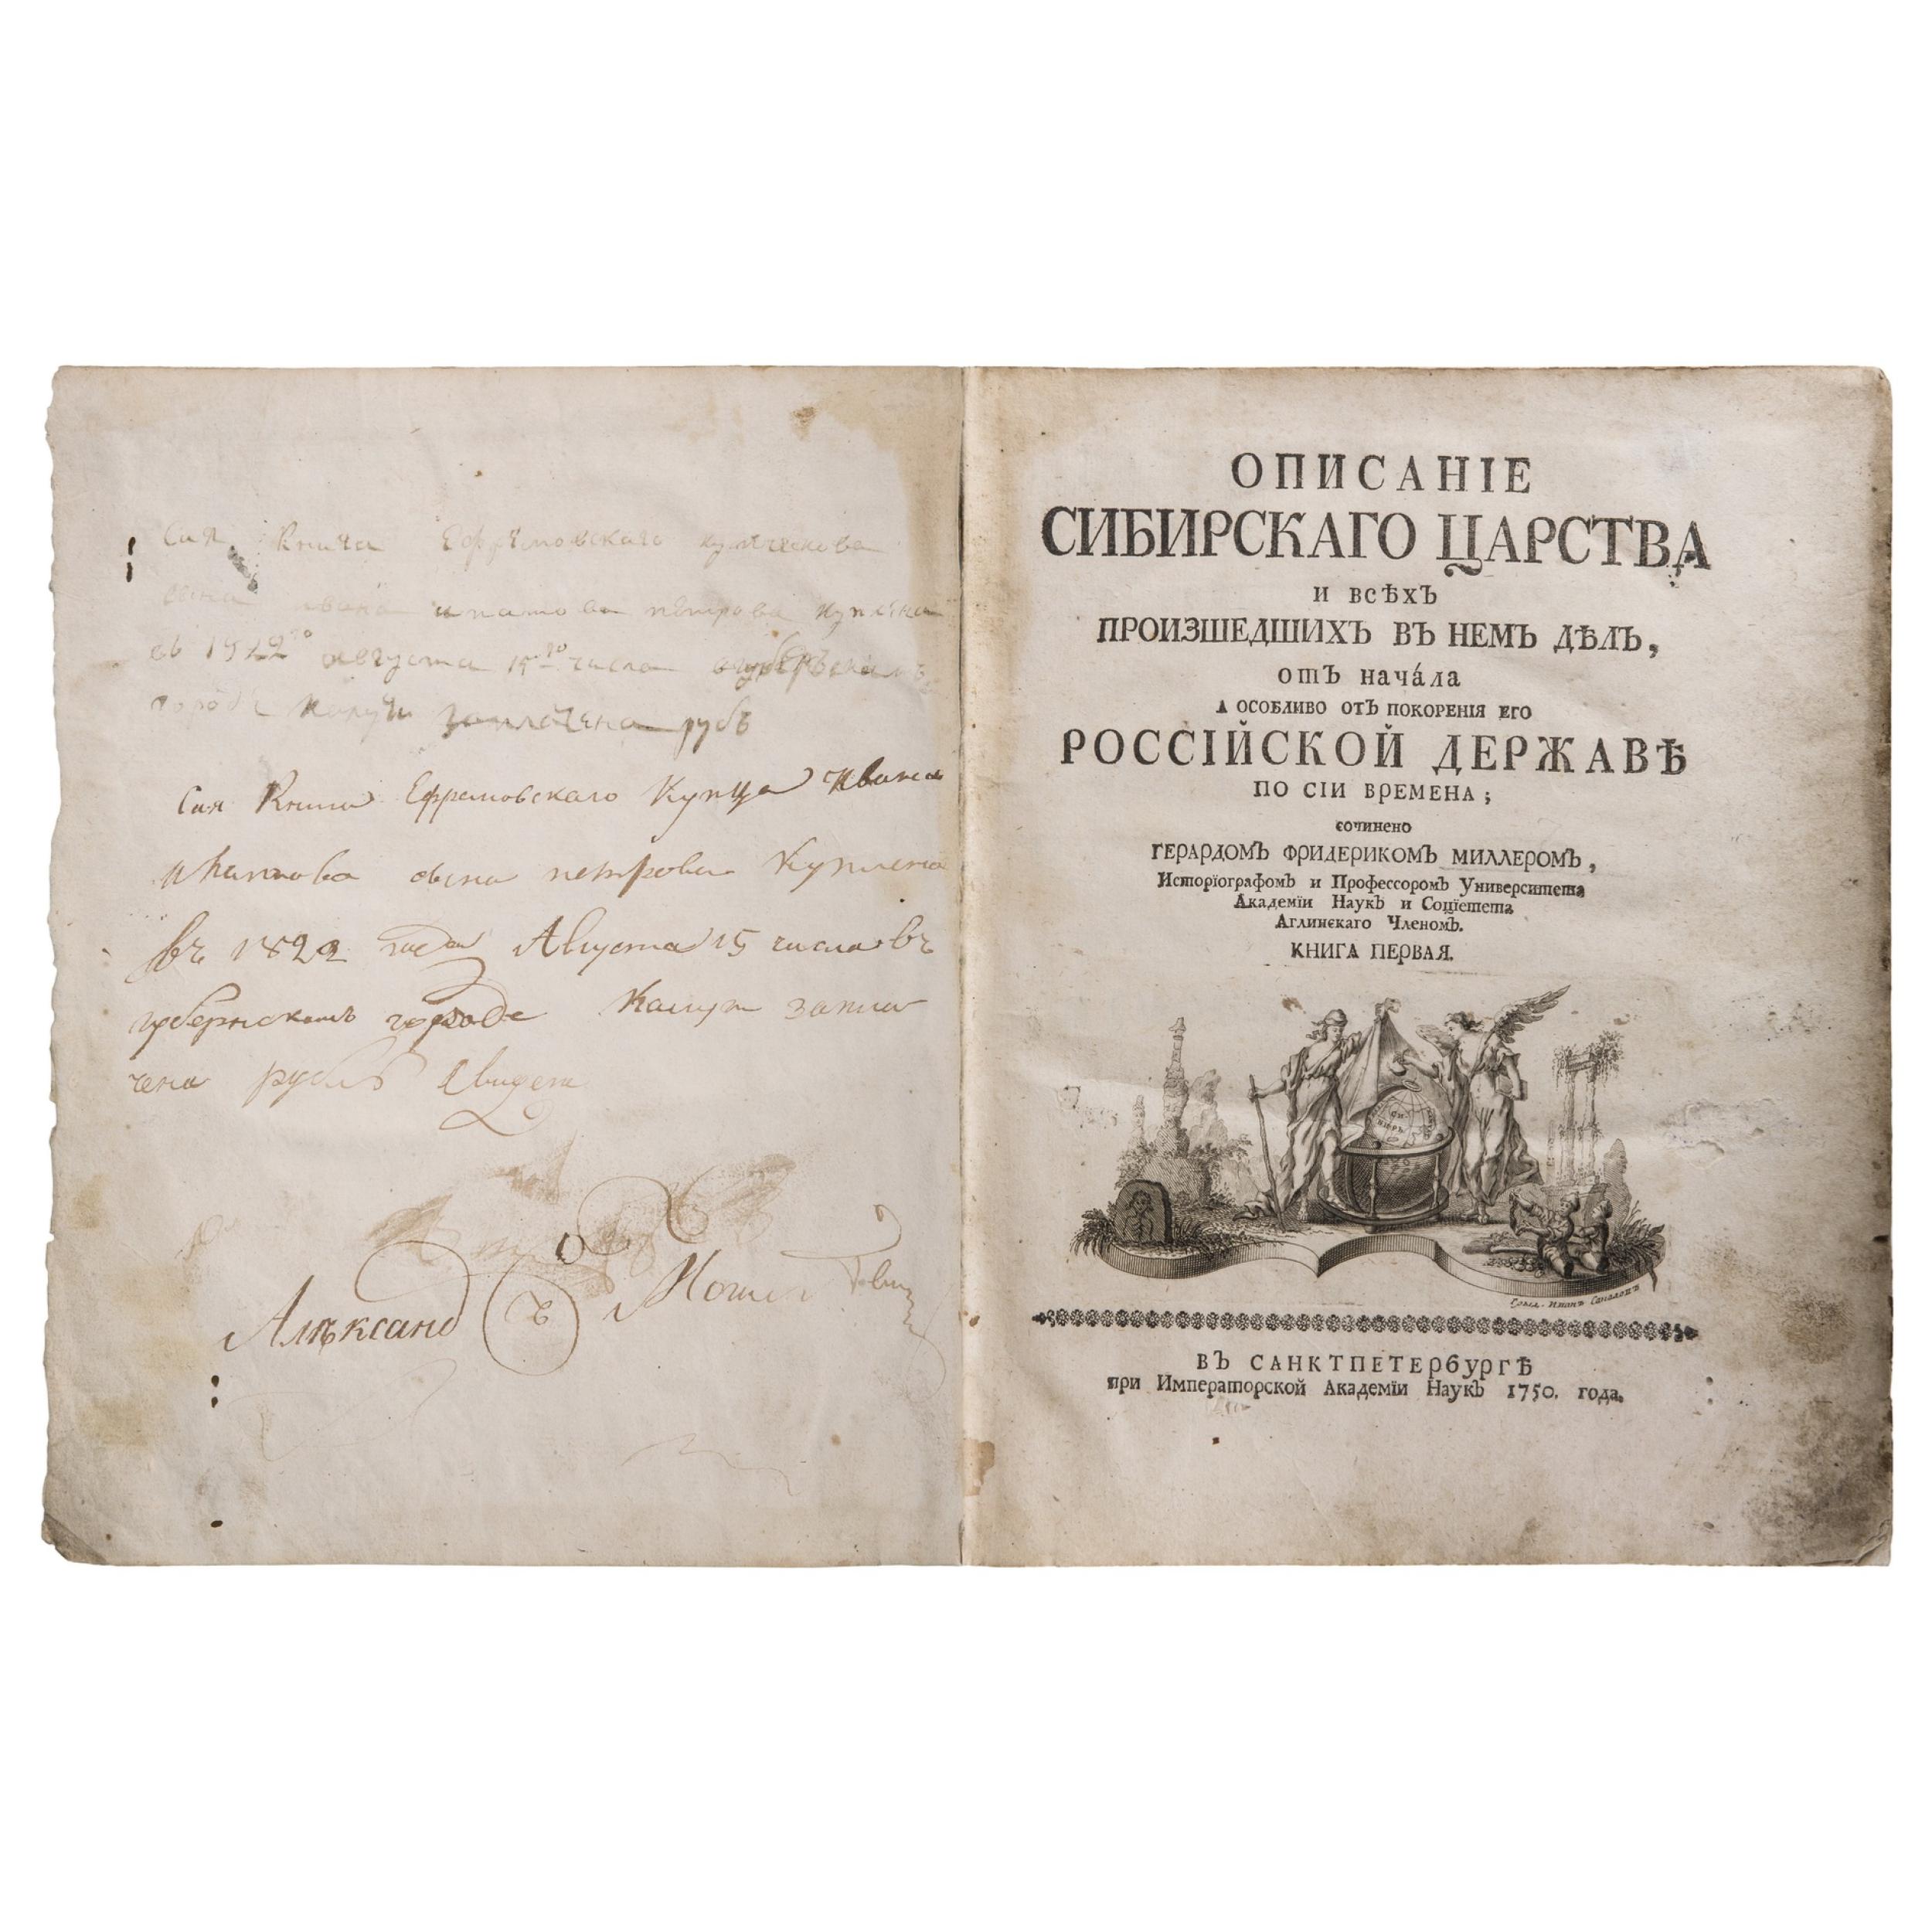 Сия книга Ефремовскаго купеческова
сына ивана ипатова петрова куплена
въ 1822го августа 15го числа
городе калуги заплачена рубъ
Сия Книга Ефремовскаго Купца Ивана
ипатова сына петрова Куплена
въ 1822 года Августа 15 числа въ
губернскомъ городе Калуги запла
чена рубль
Алѣксандръ
ОПИСАНІЕ
СИБИРСКАГО ЦАРСТВА
И ВСѢХЪ
ПРОИЗШЕДШИХЪ ВЪ НЕМЪ ДѢЛЪ,
отЪ нача́ла
А ОСОБЛИВО ОТЪ ПОКОРЕНІЯ ЕГО
РОССІЙСКОЙ ДЕРЖАВѢ
ПО СІИ ВРЕМЕНА;
сочинено
ГЕРАРДОМЪ ФРИДЕРИКОМЪ МИЛЛЕРОМЪ,
Исторїографомъ и Профессоромъ Университета
Академїи Наукъ и Социетета
Аглинскаго Членомъ.
КНИГА ПЕРВАЯ.
СИ
БИРЬ
Иванъ Соколовъ
ВЪ САНКТПЕТЕРбургѢ
при Императорской Академїи Наукъ 1750. года.